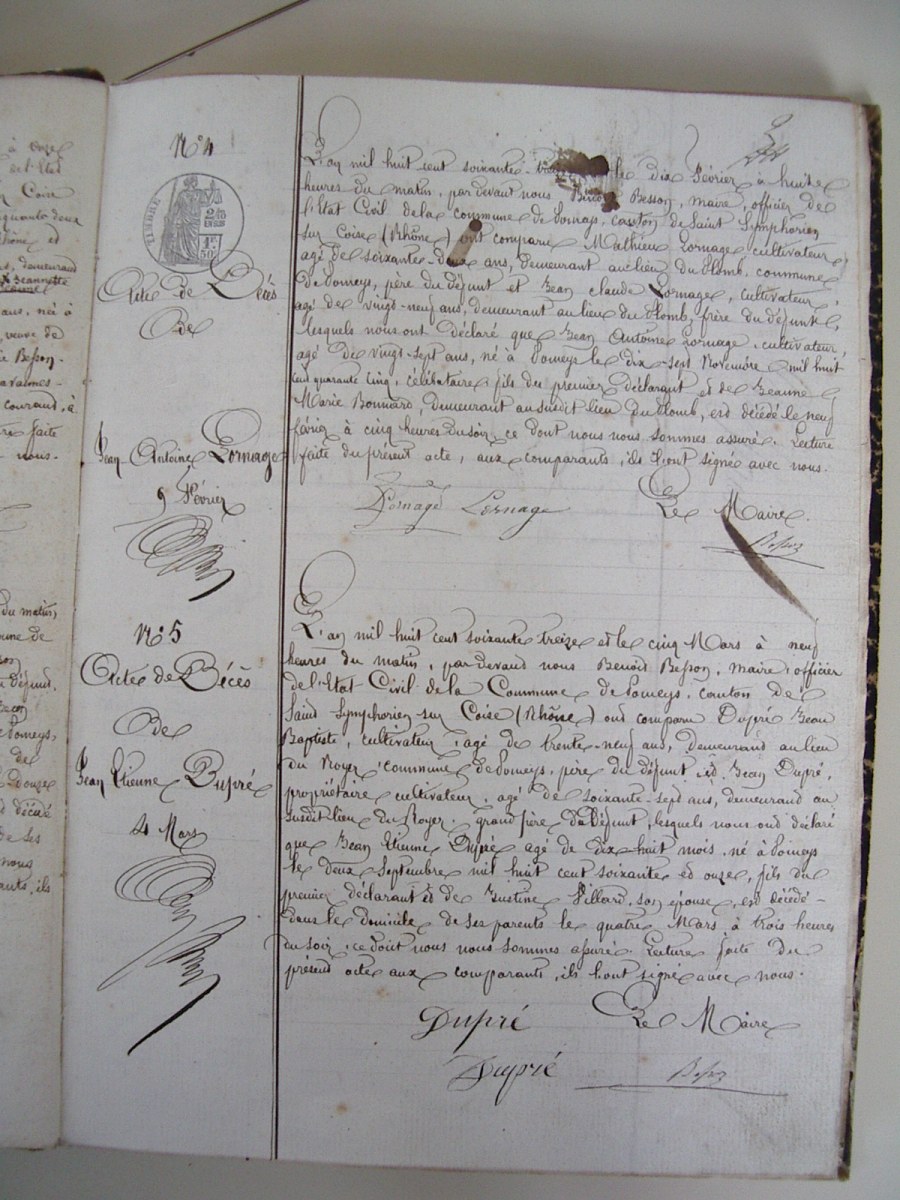 à onze
N° 4
TIMBRE
2/10 EN SUS
1F. 50c
Acte de Décès
De
Jean Antoine Lornage
9 Février
L'an mil huit cent soixante le dix Février à huit
heures du matin, par devant nous Besson, maire, officier de
l'Etat Civil de la commune de Pomeys, canton de Saint Symphorien
sur Coise (Rhône) ont comparu Mathieu Lornage, cultivateur,
agé de soixante-deux ans, demeurant au lieu du Plomb, commune
de Pomeys, père du défunt et Jean Claude Lornage, cultivateur,
agé de vingt-neuf ans, demeurant au lieu du Plomb, frère du défunt,
lesquels nous ont déclaré que Jean Antoine Lornage, cultivateur,
agé de vingt-sept ans, né à Pomeys le dix-sept Novembre mil huit
cent quarante cinq, célibataire, fils du premier déclarant et de Jeanne
Marie Bonnard, demeurant au susdit lieu du Plomb, est décédé le neuf
février à cinq heures du soir, ce dont nous nous sommes assuré. Lecture
faite du présent acte, aux comparants, ils l'ont signé avec nous.
Lornage Lornage Le Maire.
Besson
N° 5
Acte de Décès
De
Jean Etienne Dupré
4 Mars
L'an mil huit cent soixante treize et le cinq Mars à neuf
heures du matin, par devant nous Benoît Besson, maire, officier
de l'Etat Civil de la Commune de Pomeys, canton de
Saint Symphorien sur Coise (Rhône) ont comparu Dupré Jean
Baptiste, cultivateur, agé de trente-neuf ans, demeurant au lieu
du Royer, commune de Pomeys, père du défunt et Jean Dupré,
propriétaire cultivateur, agé de soixante-sept ans, demeurant au
susdit lieu du Royer, grand père du défunt, lesquels nous ont déclaré
que Jean Etienne Dupré agé de dix-huit mois, né à Pomeys
le deux Septembre mil huit cent soixante et onze, fils du
premier déclarant et de Justine Villard, son épouse, est décédé
dans le domicile de ses parents le quatre Mars à trois heures
du soir, ce dont nous nous sommes assuré. Lecture faite du
présent acte aux comparants, ils l'ont signé avec nous.
Dupré Le Maire
Dupré Besson